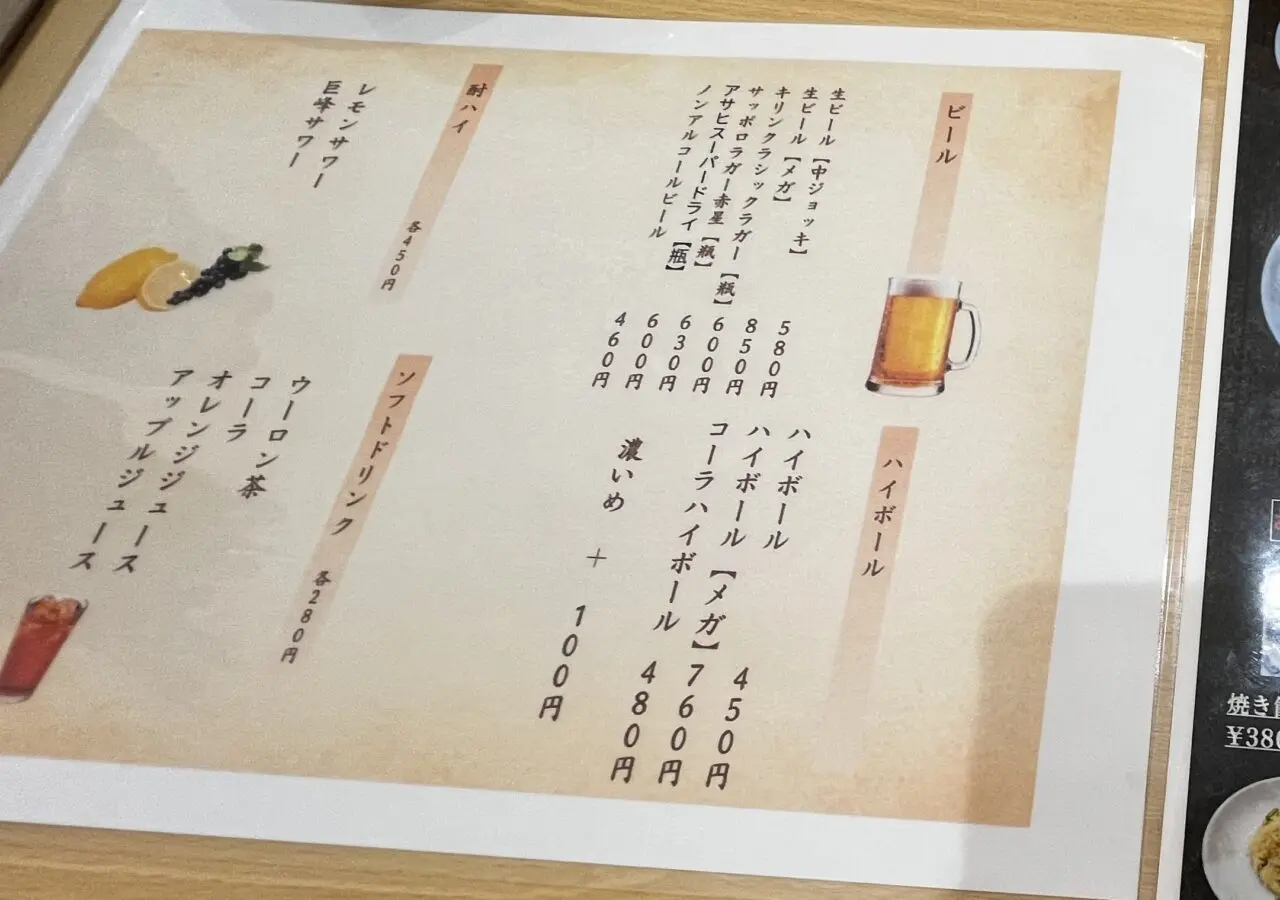 ビール
生ビール【中ジョッキ】 580円
生ビール【メガ】 850円
キリンクラシックラガー【瓶】 600円
サッポロラガー赤星【瓶】 630円
アサヒスーパードライ【瓶】 600円
ノンアルコールビール 460円
ハイボール
ハイボール 450円
ハイボール【メガ】 760円
コーラハイボール 480円
濃いめ + 100円
酎ハイ 各450円
レモンサワー
巨峰サワー
ソフトドリンク 各280円
ウーロン茶
コーラ
オレンジジュース
アップルジュース
焼き
¥380